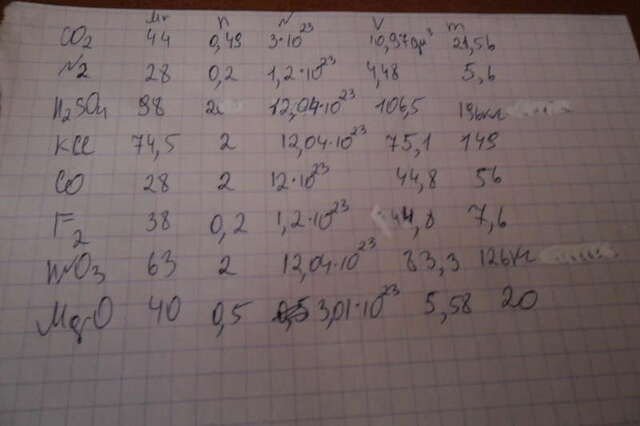 Mr n N V m
CO2 44 0,49 3·10^23 10,97дм³ 21,56
N2 28 0,2 1,2·10^23 4,48 5,6
H2SO4 98 12,04·10^23 106,5 196кг
KCl 74,5 2 12,04·10^23 75,1 149
CO 28 2 12·10^23 44,8 56
F2 38 0,2 1,2·10^23 44,8 7,6
HNO3 63 2 12,04·10^23 83,3 126кг
MgO 40 0,5 3,01·10^23 5,58 20